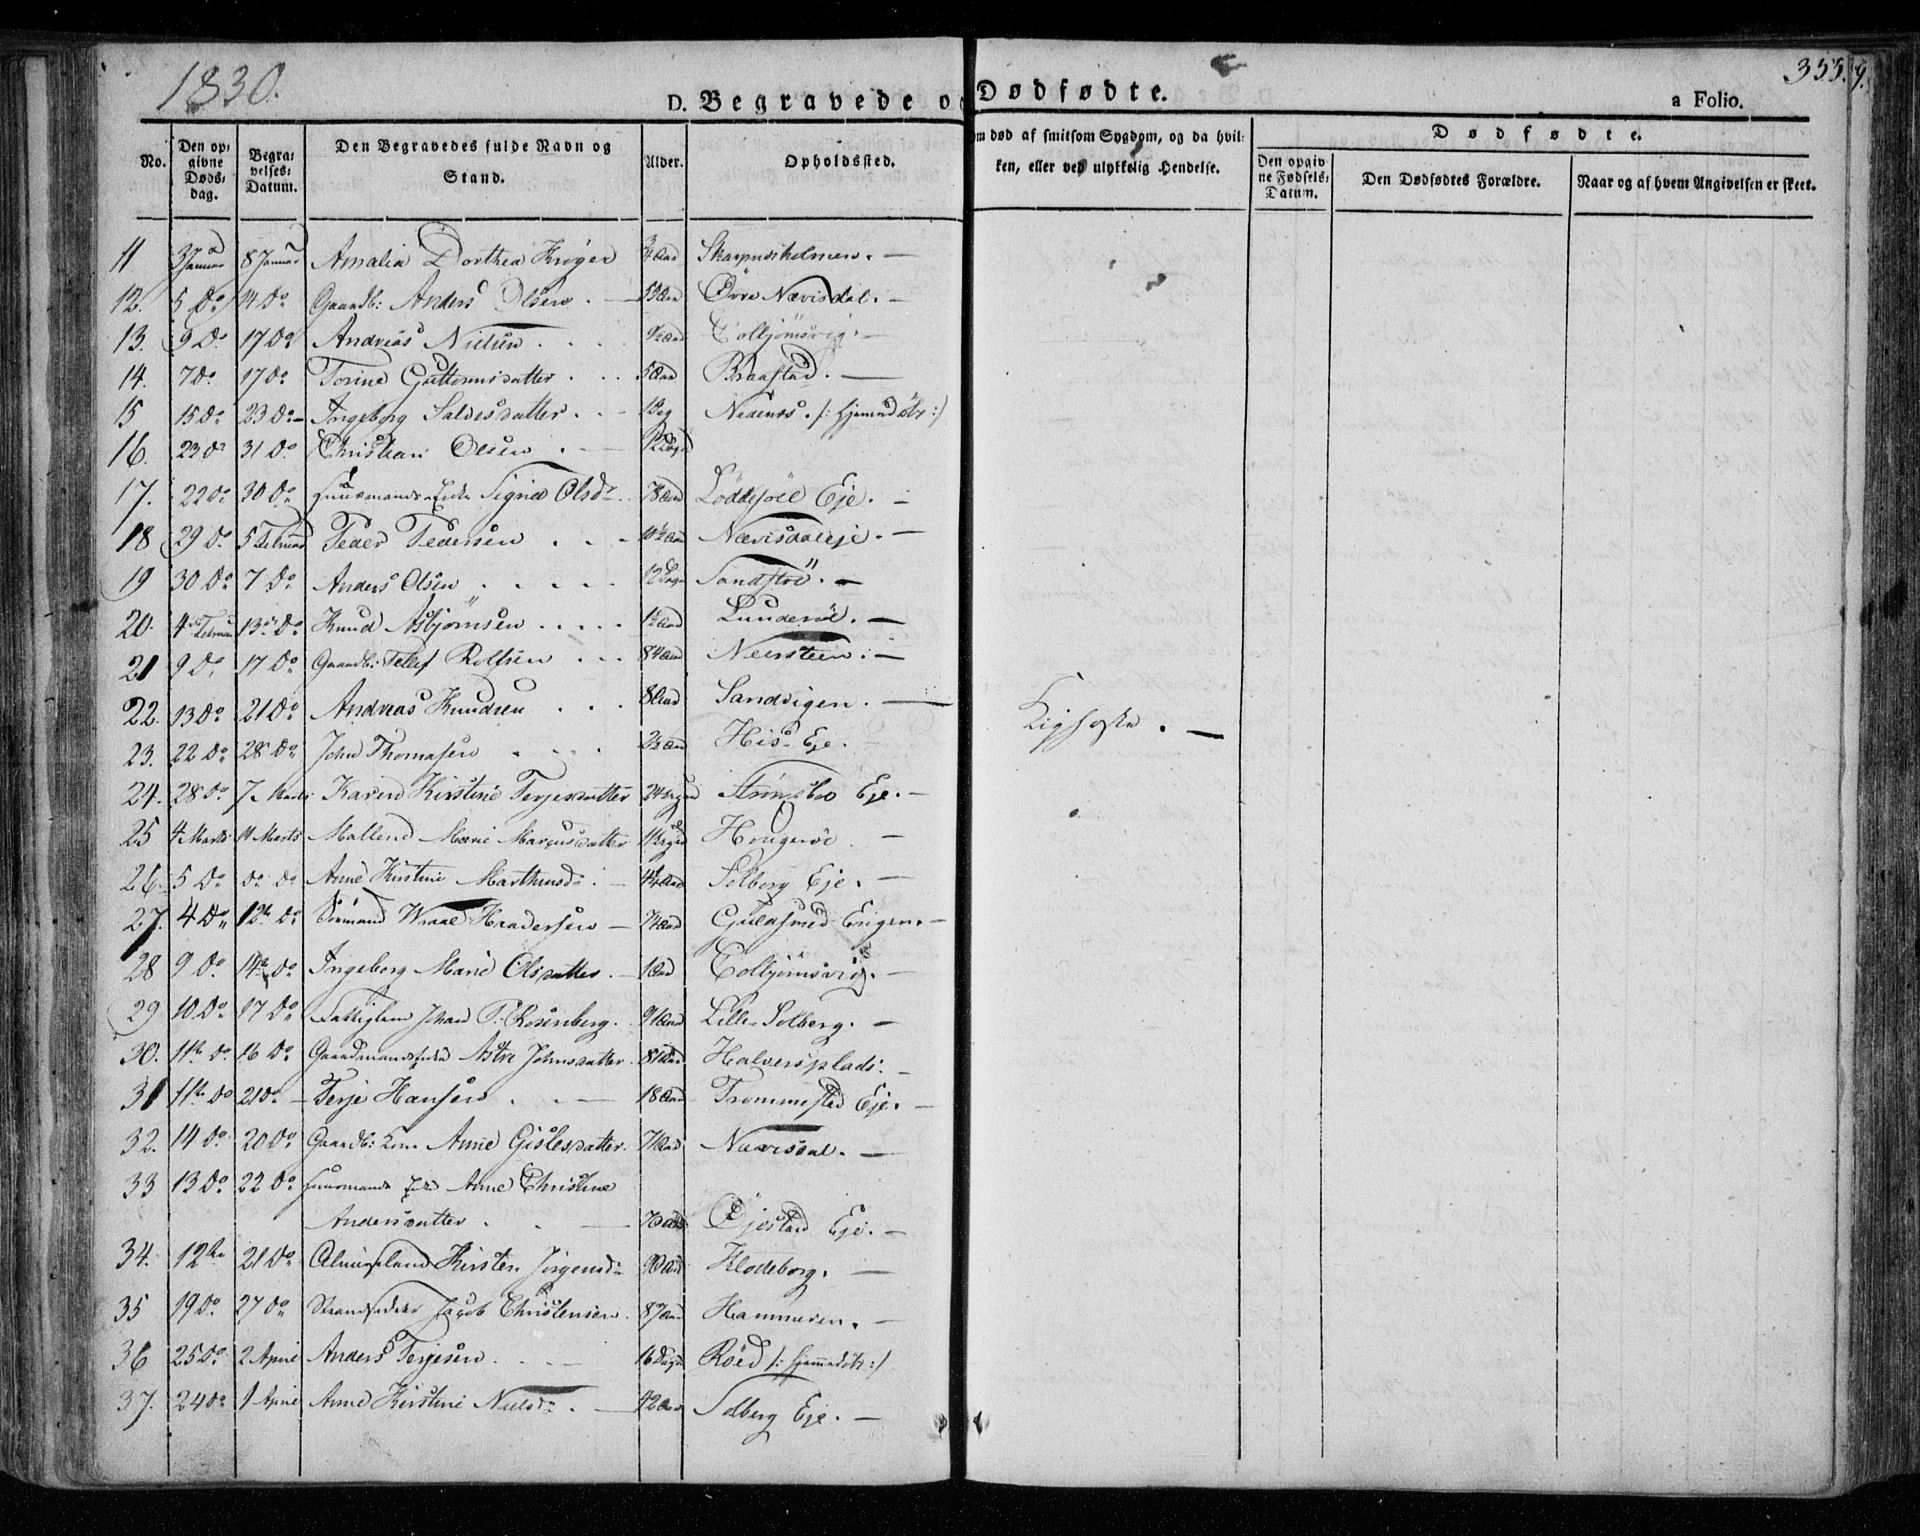 1830.
355. 9.
D. Begravede o
Dødfødte.
a Folio.
No.
Den op-
givne
Døds-
dag.
Begra-
velses-
Datum.
Den Begravedes fulde Navn og
Stand.
Alder.
Opholdssted.
om død af smitsom Sygdom, og da hvil-
ken, eller ved ulykkelig Hendelse.
Dødfødte.
Den opgiv-
ne Fødsels-
Datum.
Den Dødfødtes Forældre.
Naar og af hvem Angivelsen er skeet.
11 3 Januar 8 Januar Amalia Dorthea Krøger 3/4 Aar Skarpnesholmen. —
12. 5 Do 14 Do Gaardb: Anders Olsen. — 53 Aar Øvre Nævisdal. —
13. 9 Do 17 Do Andreas Nielsen . . . . 9½ Aar Colbjømsvig. —
14. 7 Do 17 Do Torine Guttormsdatter . . . 5 Aar Braastad. —
15 15 Do 23 Do Ingeborg Salvesdatter. . — 1 Dag Nedenes. /: hjemmedøbt :/
16. 23 Do 31 Do Christian Olsen . — 12 Dage
17. 22 Do 30 Do Huusmands Enke Sigrid Olsdr. 78 Aar Løddesøl Eje. —
18 29 Do 5 Februar Peder Pedersen . . . 10½ Aar Nævisdaleeje. —
19 30 Do 7 Do Anders Olsen . . . . . 12 Dage Sandstøe. —
20. 4 Februar 13 Do Knud Asbjømsen . . . . . 1½ Aar Lunderøe. —
21 9 Do 17 Do Gaardb: Tellef Rolfsen . . . 84 Aar Neersteen. —
22. 13 Do 21 Do Andreas Knudsen . . . 8 Aar Sandvigen. —
Kighoste. —
23. 22 Do 28 Do John Thomasen . . . 2½ Aar His Eje. —
24. 28 Do 7 Marts Karen Kirstine Terjesdatter 24 Uger Strømsboe Eje. —
25 4 Marts 11 Marts Mallene Marie Marcusdatter 11 Uger Hougerøe —
26. 5 Do Do Do Anne Kirstine Marthinsdr. — 4¼ Aar Solberg Eje. —
27. 4 Do 12te Do Sømand Wraal Haadersen — 74 Aar Guldsmed Engen. —
28 9 Do 14de Do Ingeborg Marie Olsdatter. — 1 Aar Colbjømsvig. —
29 10 Do 17 Do Fattiglem Johan P. Rosenberg. 91 Aar Lille Solberg. —
30. 11te Do 16 Do Gaardmands Enke Astre Johnsdatter. 81 Aar Halvorsplads. —
31 11te Do 21 Do — Terje Hansen . . — 18 Aar Frommested Eje. —
32. 14 Do 20 Do Gaardb: Kone Anne Gislesdatter. 71 Aar Nævisdal. —
33 13 Do 22 Do Huusmands Enke Anne Christine
Andersdatter . . — 70 Aar Øjestad Eje. —
34. 12te 21 Do Almisselem Kirsten Jørgensdr 90 Aar Klodeborg. —
35 19 Do 27 Do Strandsidder Jacob Christensen. 87 Aar Hammeren. —
36 25 Do 2 April Anders Terjesen. . . — 16 Dage Røed /: hjemmedøbt :/
37. 24 Do 1 April Anne Kirstine Nielsdr. — 42 Aar Solberg Eje. —